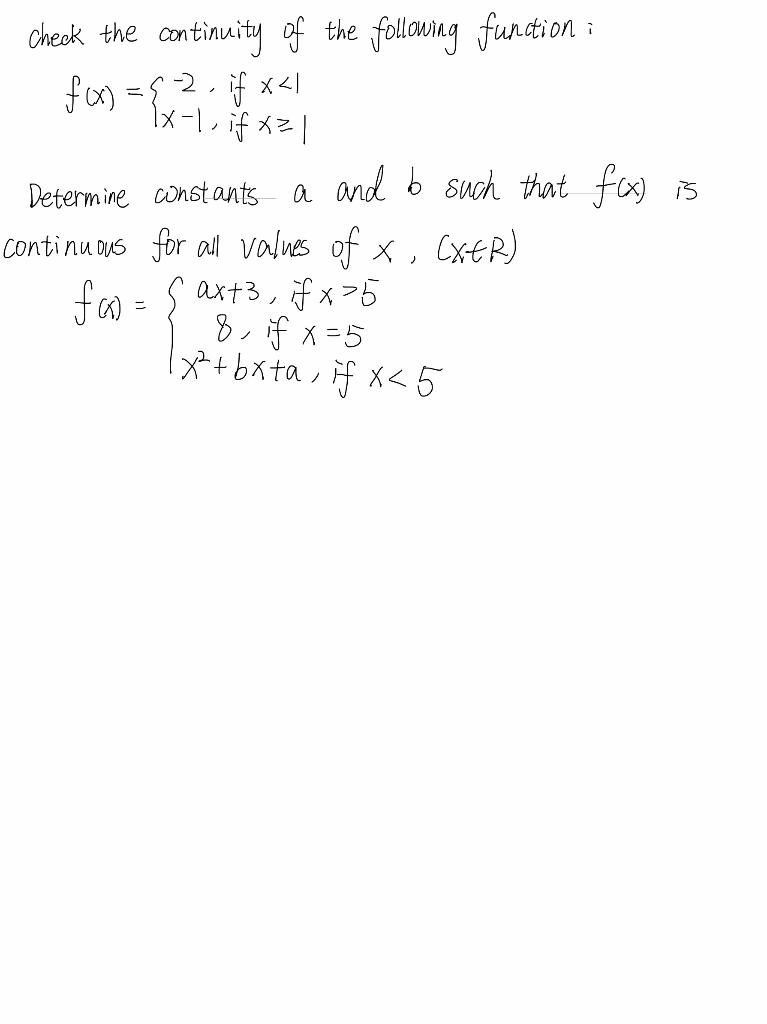 check the continuity of the following function :
f(x) = { -2 , if x<1
x-1 , if x≥1
Determine constants a and b such that f(x) is
continuous for all values of x , (x∈R)
f(x) = { ax+3 , if x>5
8 , if x=5
x²+bx+a , if x<5